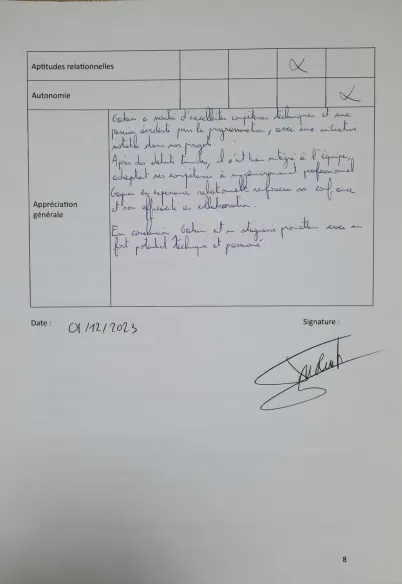 Aptitudes relationnelles X
Autonomie X
Appréciation
générale
a montré d'excellentes compétences techniques et une
passion évidente pour la programmation, avec une initiative
notable dans nos projets.
Après des débuts timides, il s'est bien intégré à l'équipe,
adaptant ses compétences à environnement professionnel
Gagner en expérience relationnelle renforcera sa confiance
et son efficacité en collaboration.
En conclusion, est un stagiaire prometteur avec un
fort potentiel technique et passionné.
Date : 01/12/2023
Signature :
8